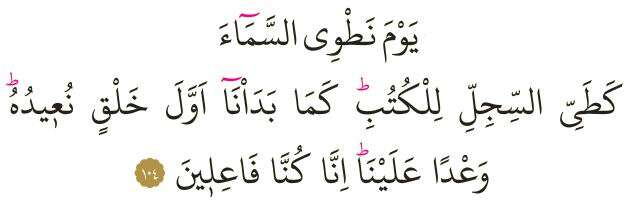 يَوْمَ نَطْوِى السَّمَٓاءَ
كَطَىِّ السِّجِلِّ لِلْكُتُبِۜ كَمَا بَدَاْنَٓا اَوَّلَ خَلْقٍ نُع۪يدُهُۜ
وَعْدًا عَلَيْنَاۜ اِنَّا كُنَّا فَاعِل۪ينَ ﴿١٠٤﴾